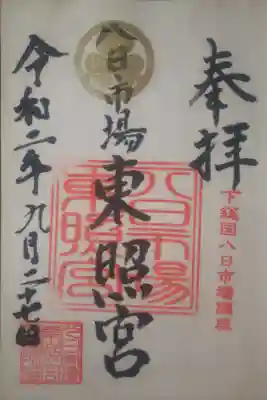 奉拝
下総国八日市場鎮座
八日市場東照宮
八日市場
東照宮
令和二年九月二十七日